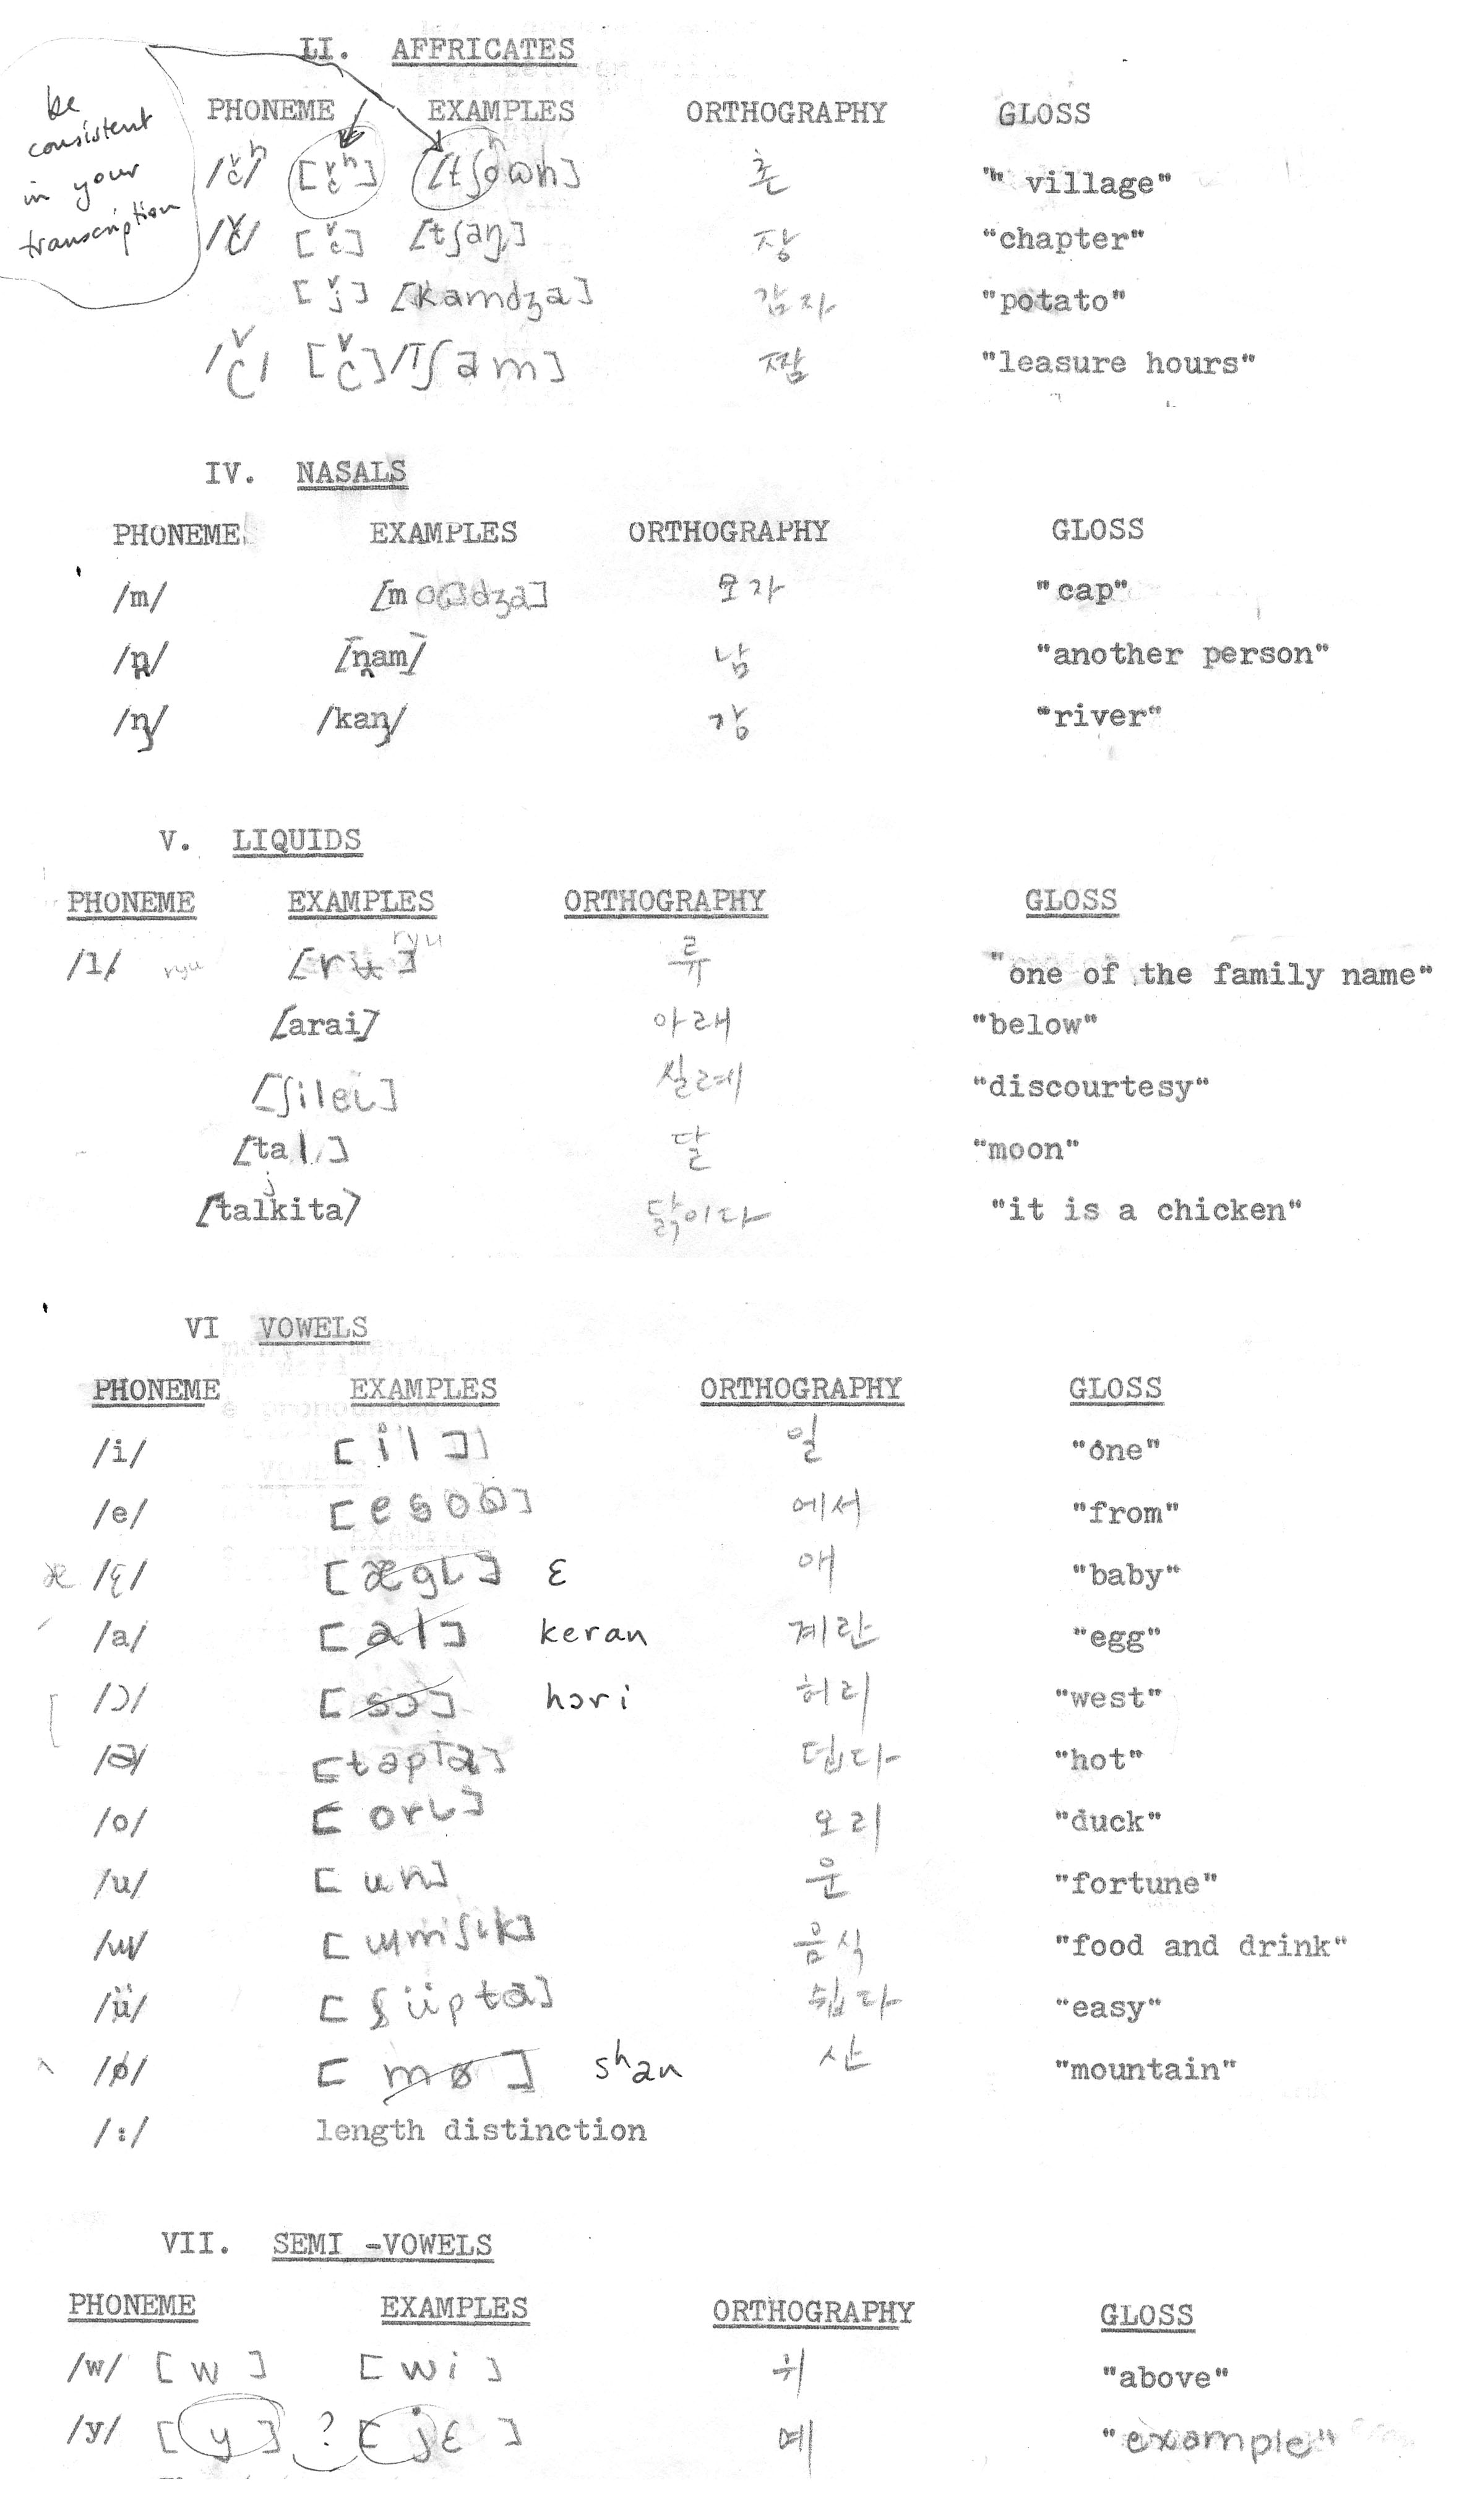 LI. AFFRICATES
be
consistent
in your
transcription
PHONEME EXAMPLES ORTHOGRAPHY GLOSS
/č̌ʰ/ [č̌ʰ] [tʃʰoωn] 촌 " village"
/č/ [č] [tʃaŋ] 장 "chapter"
[ǰ] [kamdʒa] 감자 "potato"
/Č/ [Č] /Tʃam] 짬 "leasure hours"
IV. NASALS
PHONEME EXAMPLES ORTHOGRAPHY GLOSS
/m/ [moωdʒa] 모자 "cap"
/n̪/ [n̪am] 남 "another person"
/ŋ/ /kaŋ/ 강 "river"
V. LIQUIDS
PHONEME EXAMPLES ORTHOGRAPHY GLOSS
ryu
/l/ ryu [ru] 류 "one of the family name"
[arai] 아래 "below"
[ʃilei] 실례 "discourtesy"
[tal] 달 "moon"
j
[talkita] 닭이다 "it is a chicken"
VI VOWELS
PHONEME EXAMPLES ORTHOGRAPHY GLOSS
/i/ [il] 일 "one"
/e/ [esoω] 에서 "from"
æ /ɛ/ [ægɩ] ɛ 애 "baby"
/a/ [al] keran 계란 "egg"
/ɔ/ [sɔ] hɔri 허리 "west"
/ə/ [təpTa] 덥다 "hot"
/o/ [orɩ] 오리 "duck"
/u/ [un] 운 "fortune"
/ɯ/ [ɯmʃɩk] 음식 "food and drink"
/ü/ [ʃüpta] 쉽다 "easy"
/ø/ [mø] sʰan 산 "mountain"
/:/ length distinction
VII. SEMI -VOWELS
PHONEME EXAMPLES ORTHOGRAPHY GLOSS
/w/ [w] [wi] 위 "above"
/y/ [y] ? [jɛ] 예 "example"